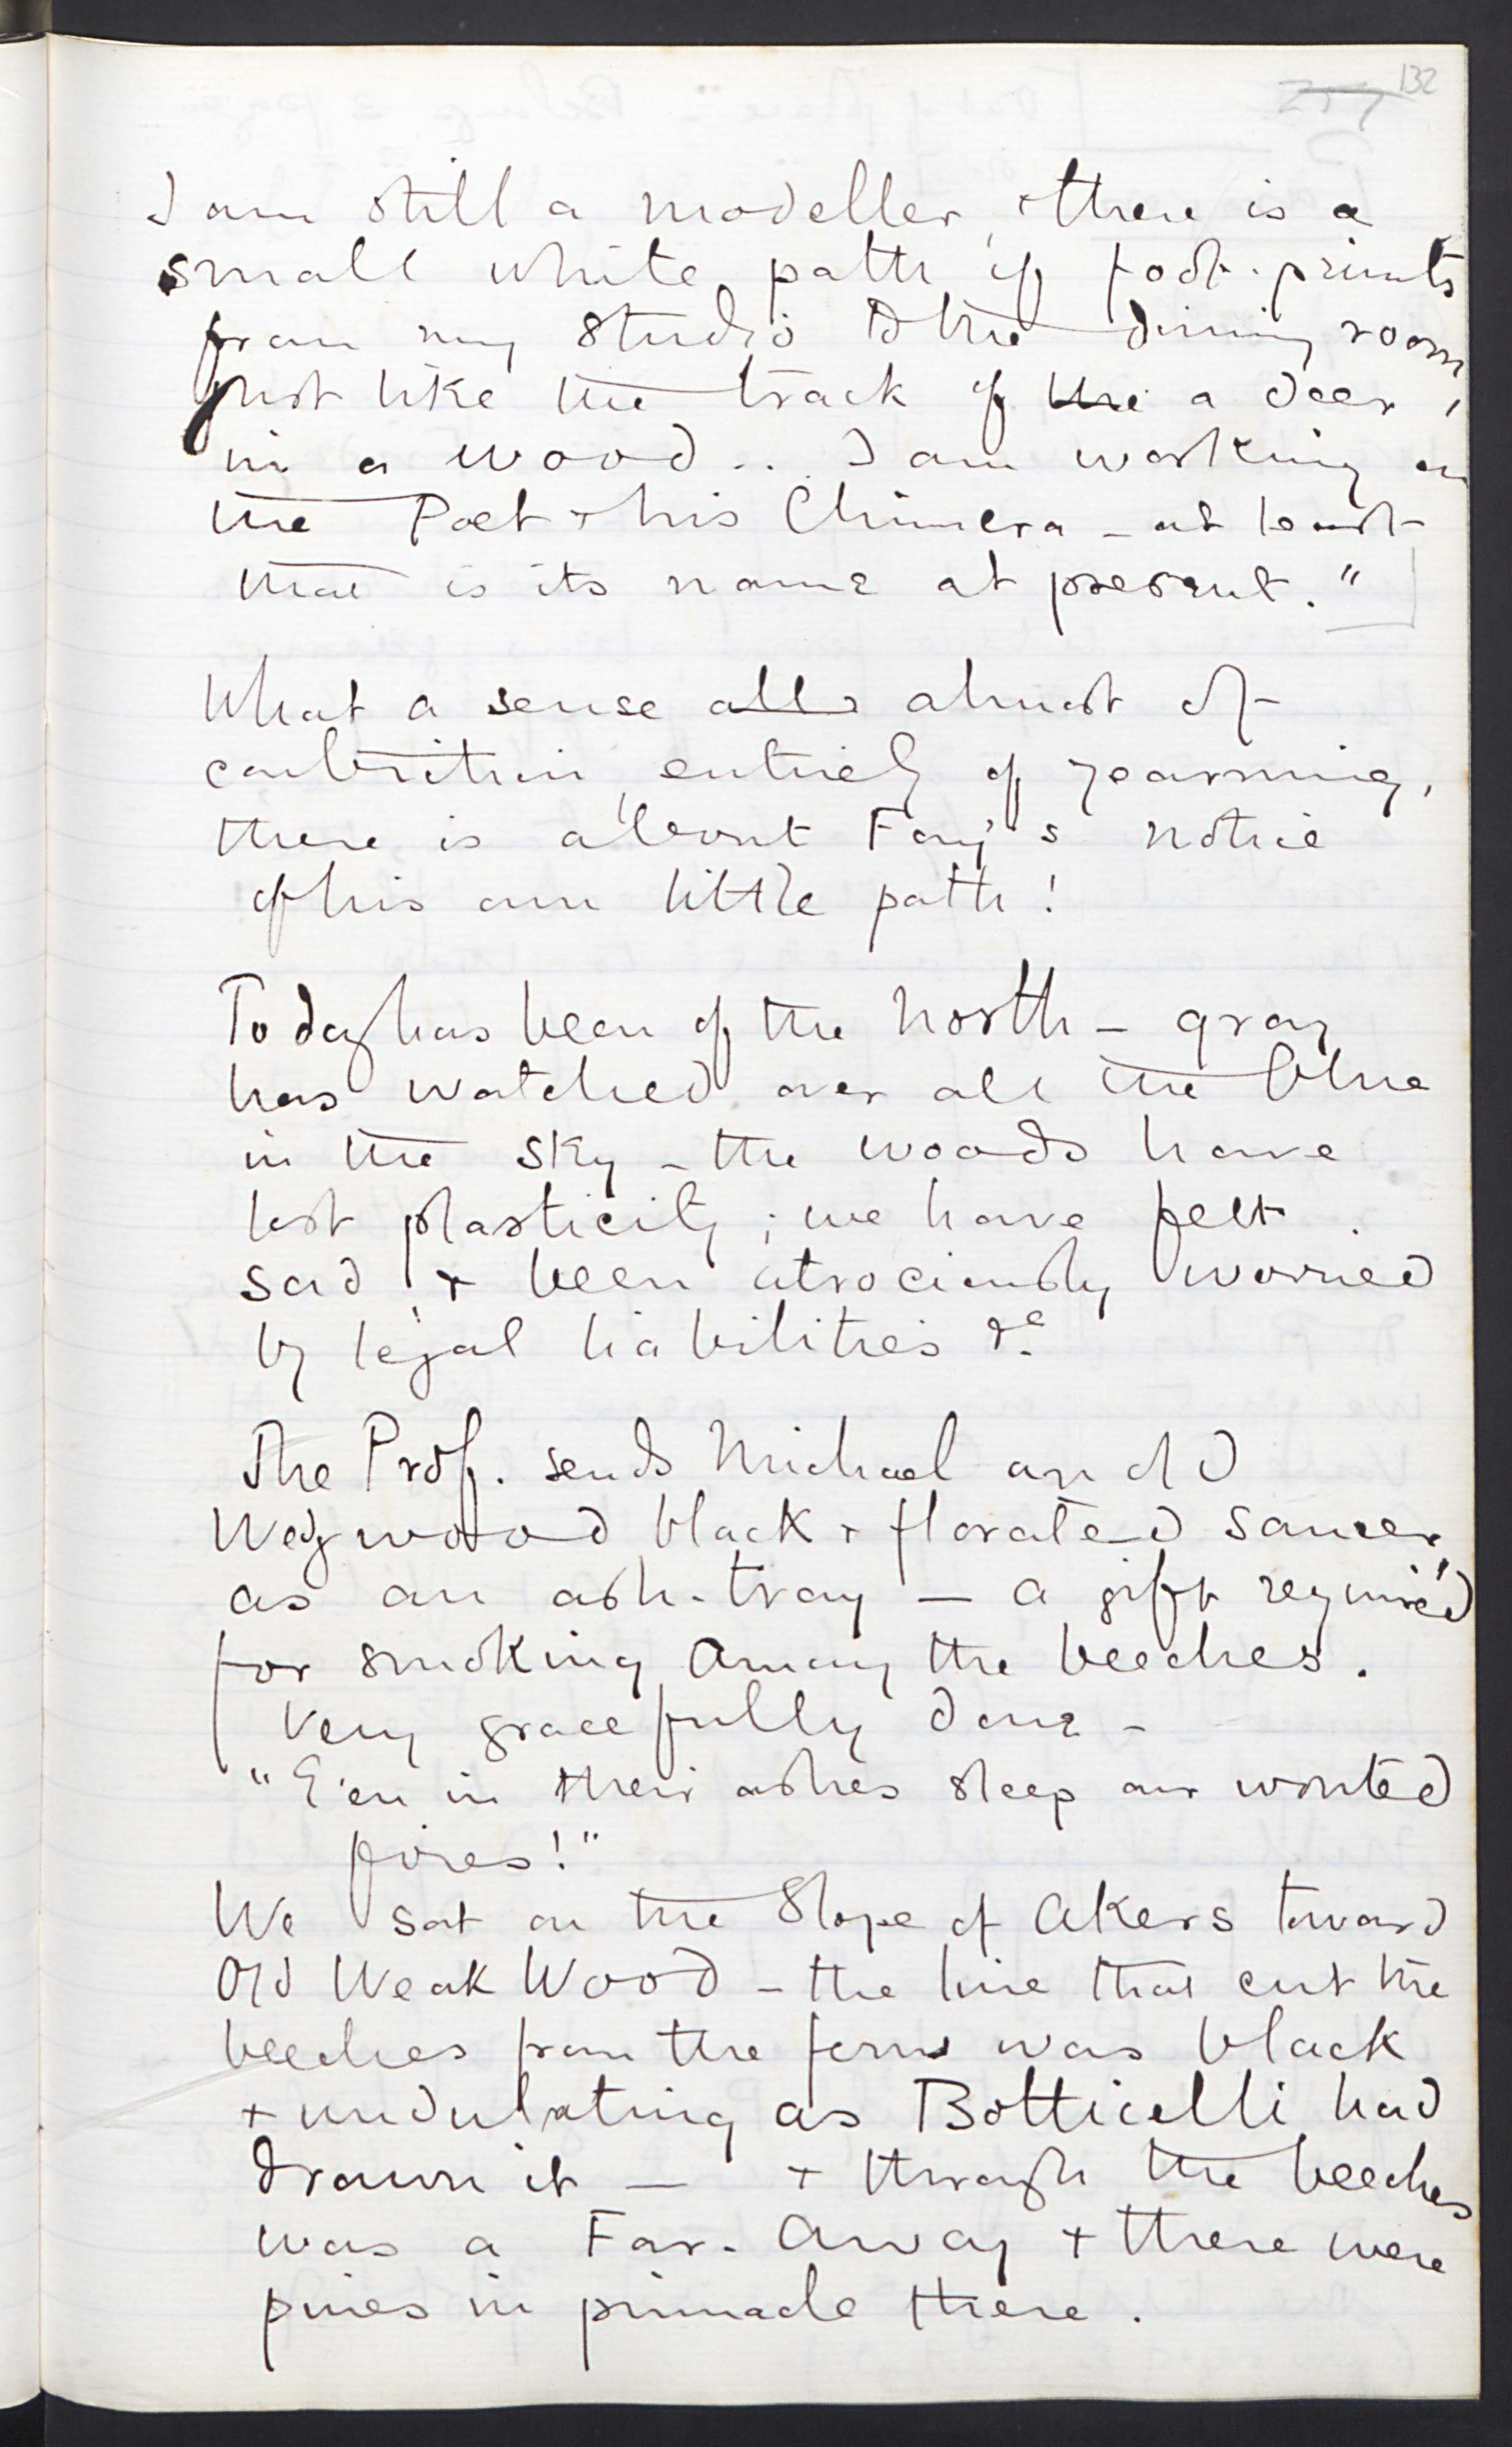 132
I am still a modeller, + there is a
small white path of foot-prints
from my studio to the dining room,
just like the track of the a deer,
in a wood... I am working on
the Poet + his Chimera - at least
that is its name at present."
What a sense all almost of
contrition, entirely of yearning,
there is about Fay's notice
of his own little path!
To day has been of the North - gray
has watched over all the blue
in the sky - the woods have
lost plasticity; we have felt
sad + been atrociously worried
by legal liabilities &c.
The Prof. sends Michael an old
Wegwood black + florated saucer,
as an ash-tray — a gift required
for smoking among the beeches.
Very gracefully done -
"E'en in their ashes sleep our wonted
fires!"
We sat on the Slope of Akers toward
Old Weak Wood - the line that cut the
beeches from the ferns was black
+ undulating as Botticelli had
drawn it — + through the beeches
was a Far-Away + there were
pines in pinnacle there.